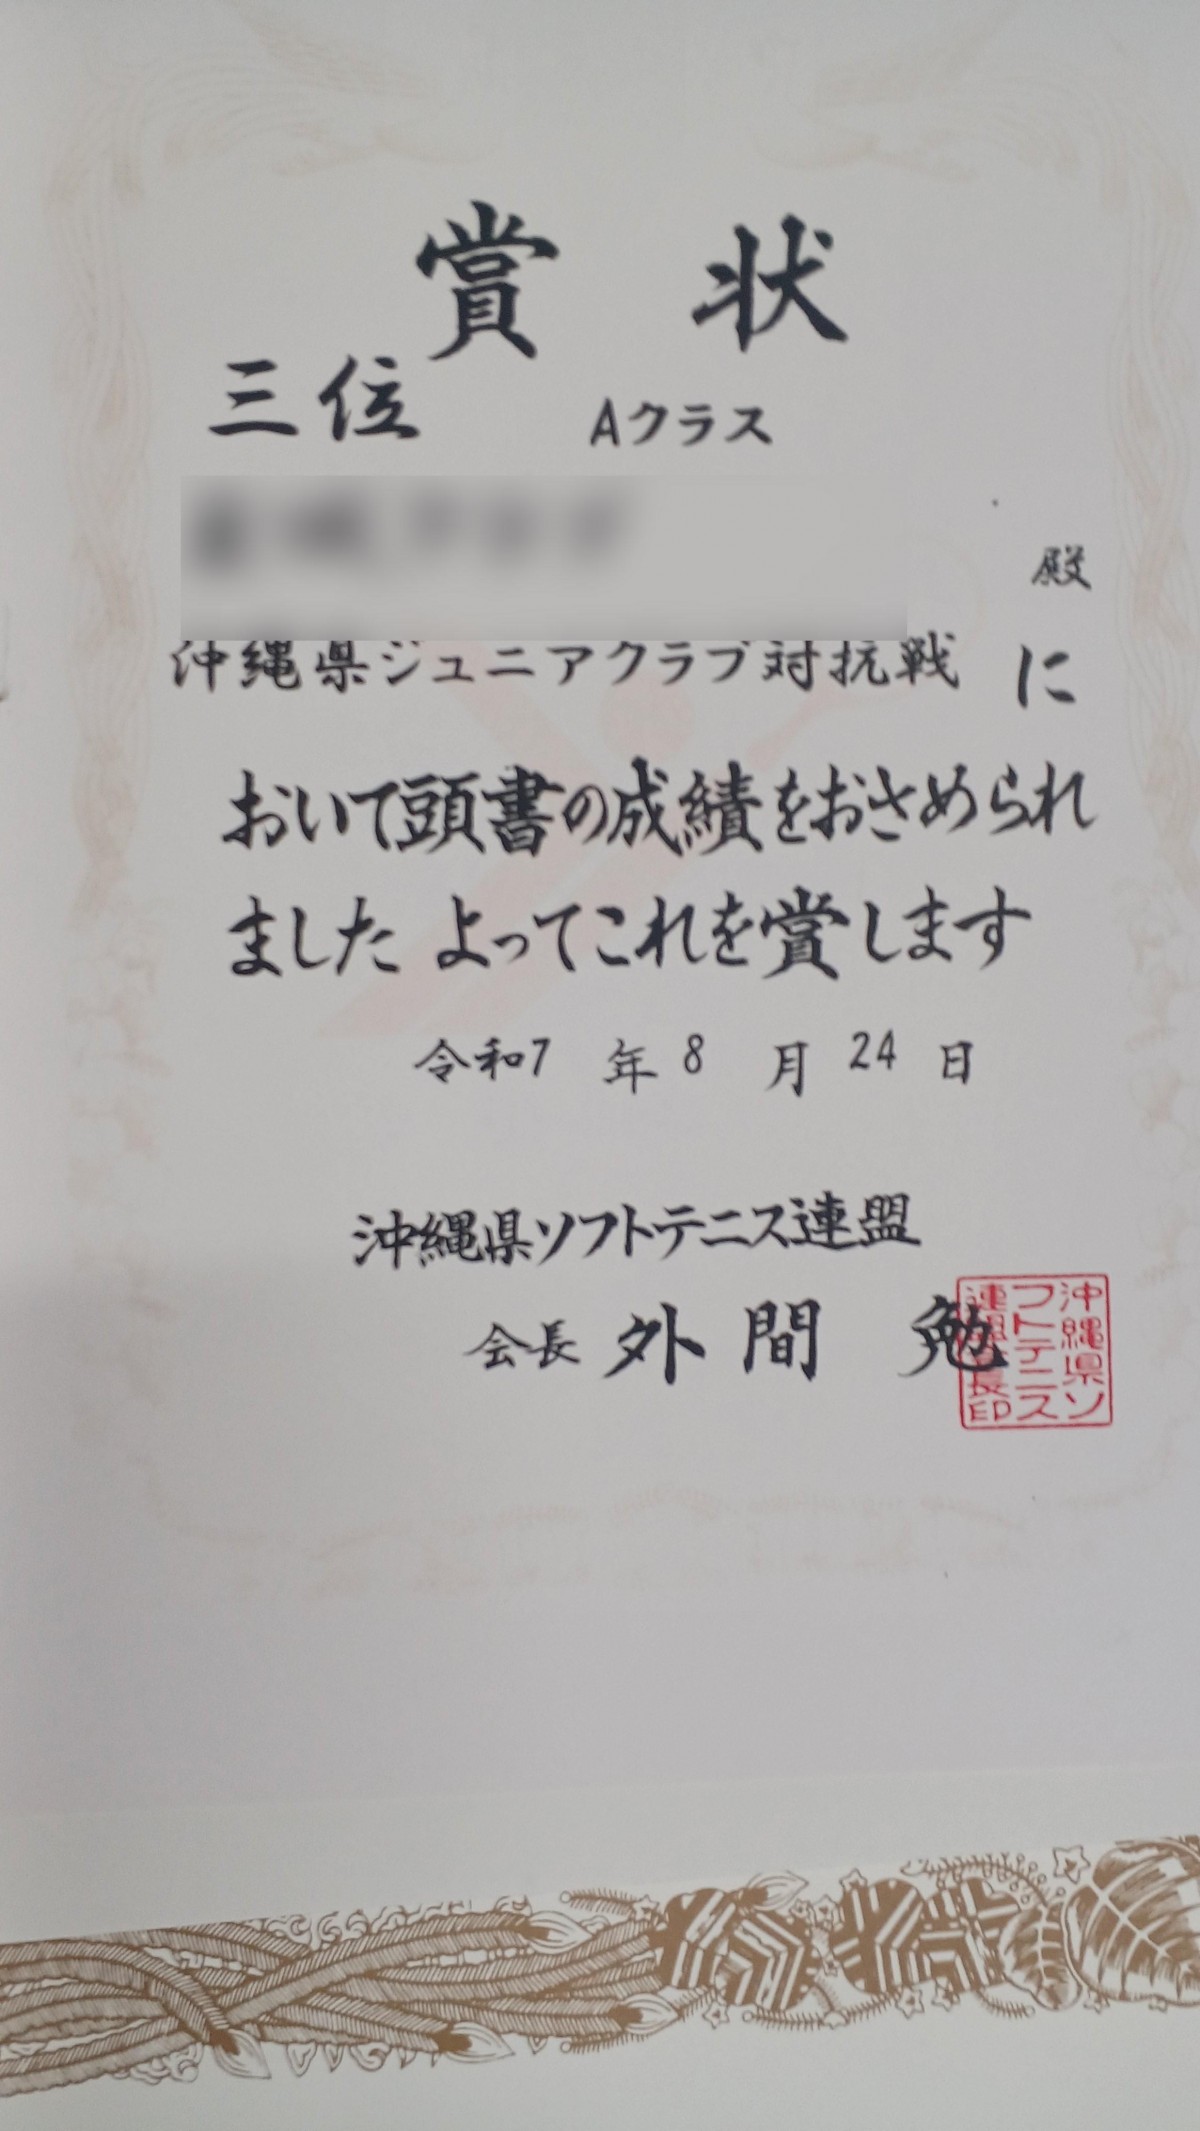 賞状
三位 Aクラス
殿
沖縄県ジュニアクラブ対抗戦 に
おいて頭書の成績をおさめられ
ました よってこれを賞します
令和7 年 8 月 24 日
沖縄県ソフトテニス連盟
会長 外間 勉
沖縄県ソ
フトテニス
連盟会長印